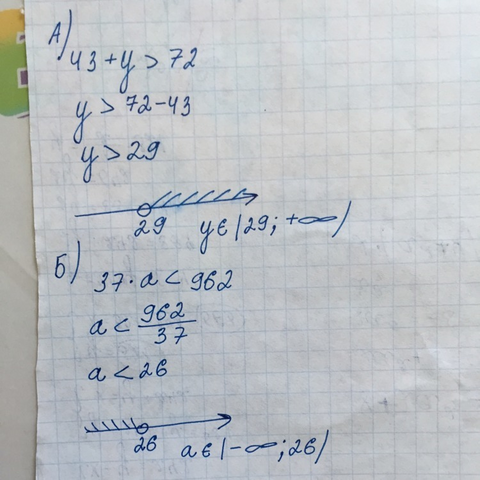 А)
43 + y > 72
y > 72 - 43
y > 29
29
y ∈ (29; +∞)
Б)
37 · a < 962
a < 962/37
a < 26
26
a ∈ (-∞; 26)